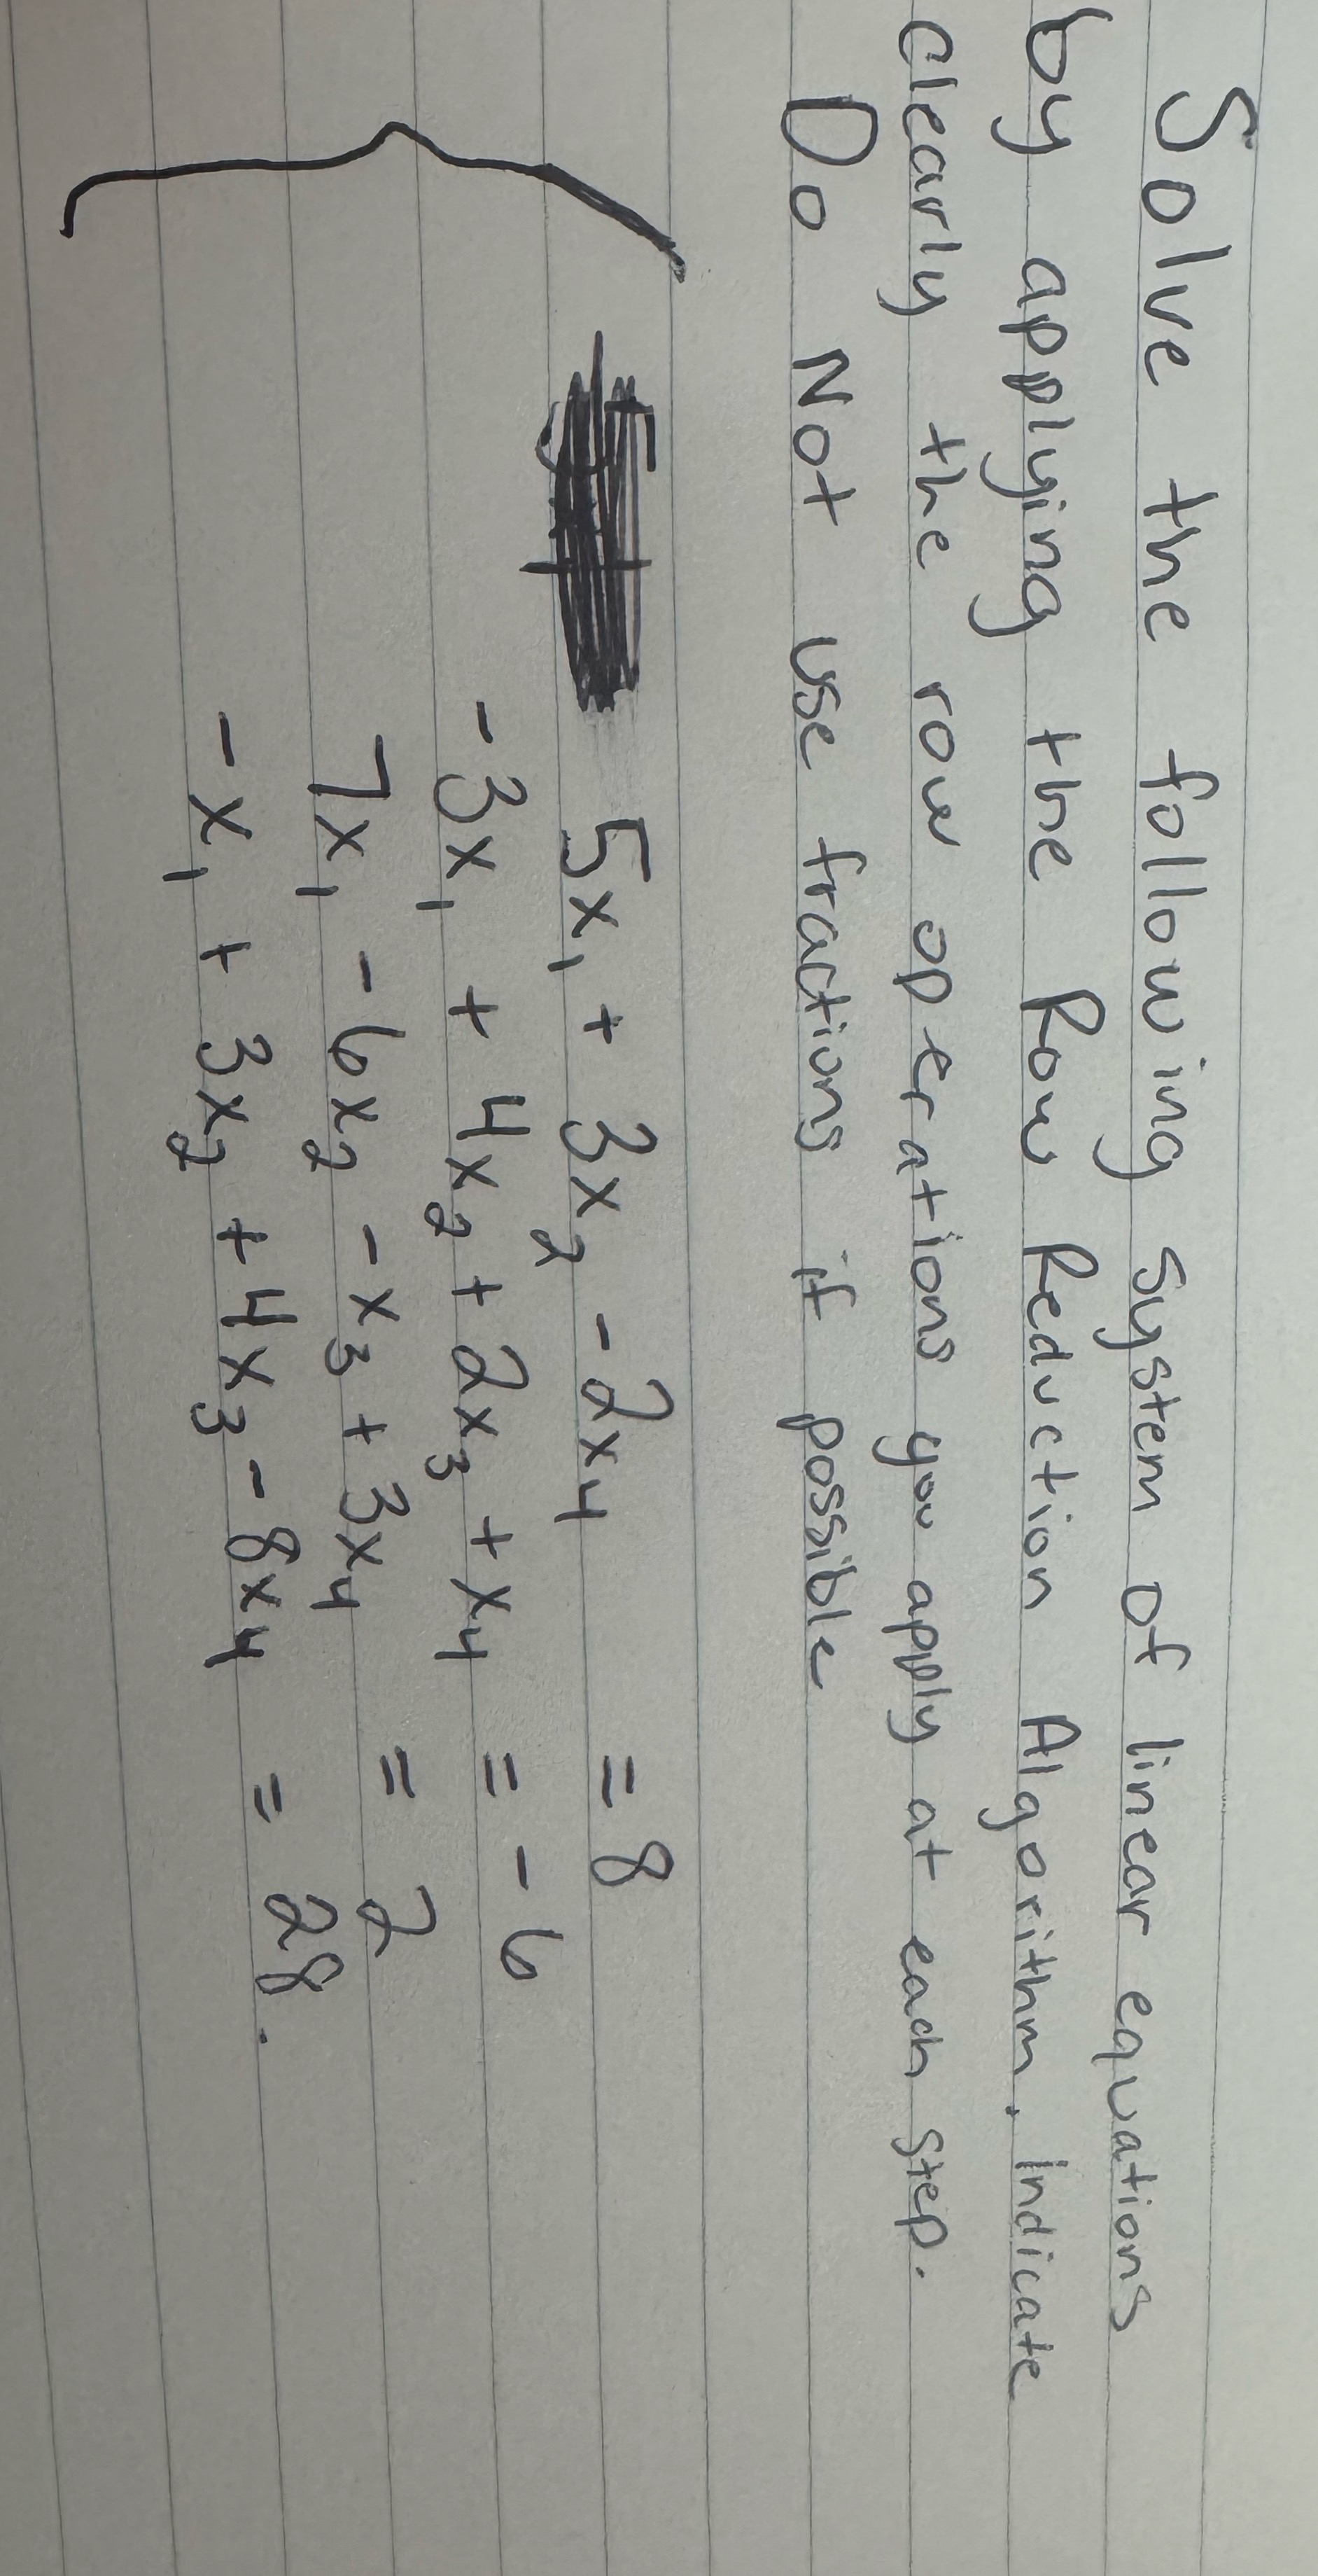 Solve the following system of linear equations
by applying the Row Reduction Algorithm. Indicate
clearly the row operations you apply at each step.
Do Not use fractions if possible
5x₁ + 3x₂ - 2x₄ = 8
-3x₁ + 4x₂ + 2x₃ + x₄ = -6
7x₁ - 6x₂ - x₃ + 3x₄ = 2
-x₁ + 3x₂ + 4x₃ - 8x₄ = 28.